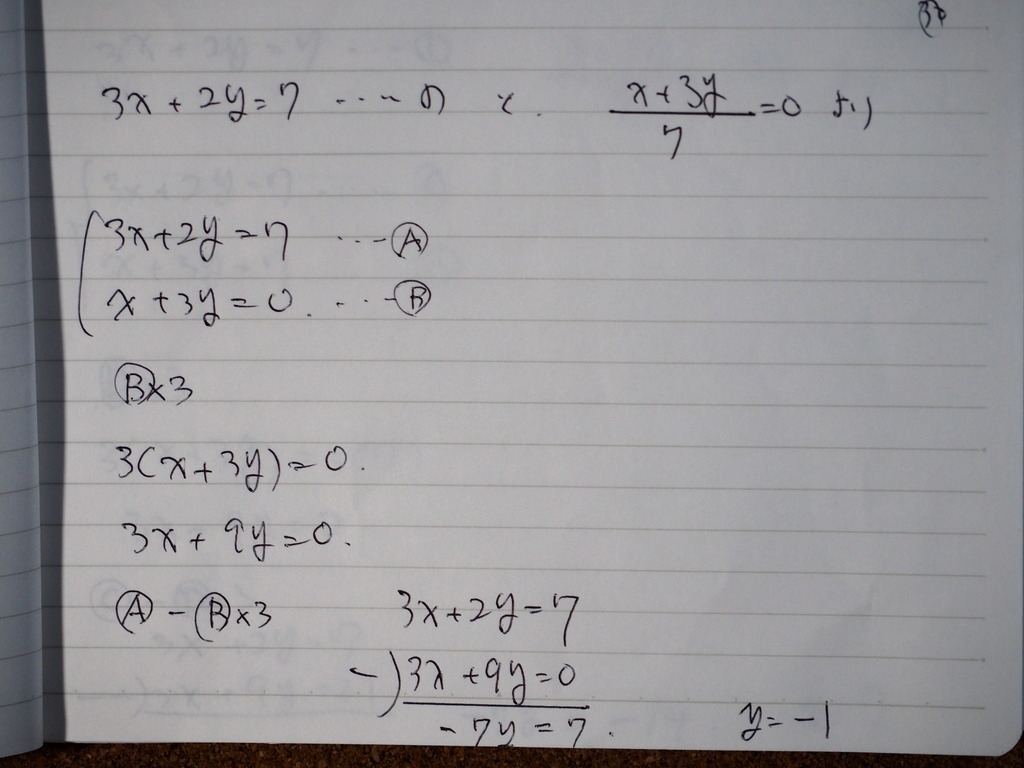 3x + 2y = 7 ・・・・ と. (x+3y)/7 = 0 より
3x+2y=7 ・・・Ⓐ
x+3y=0. ・・・Ⓑ
Ⓑ×3
3(x+3y)=0.
3x+9y=0.
Ⓐ-Ⓑ×3 3x+2y=7
-)3x+9y=0
-7y=7. y=-1